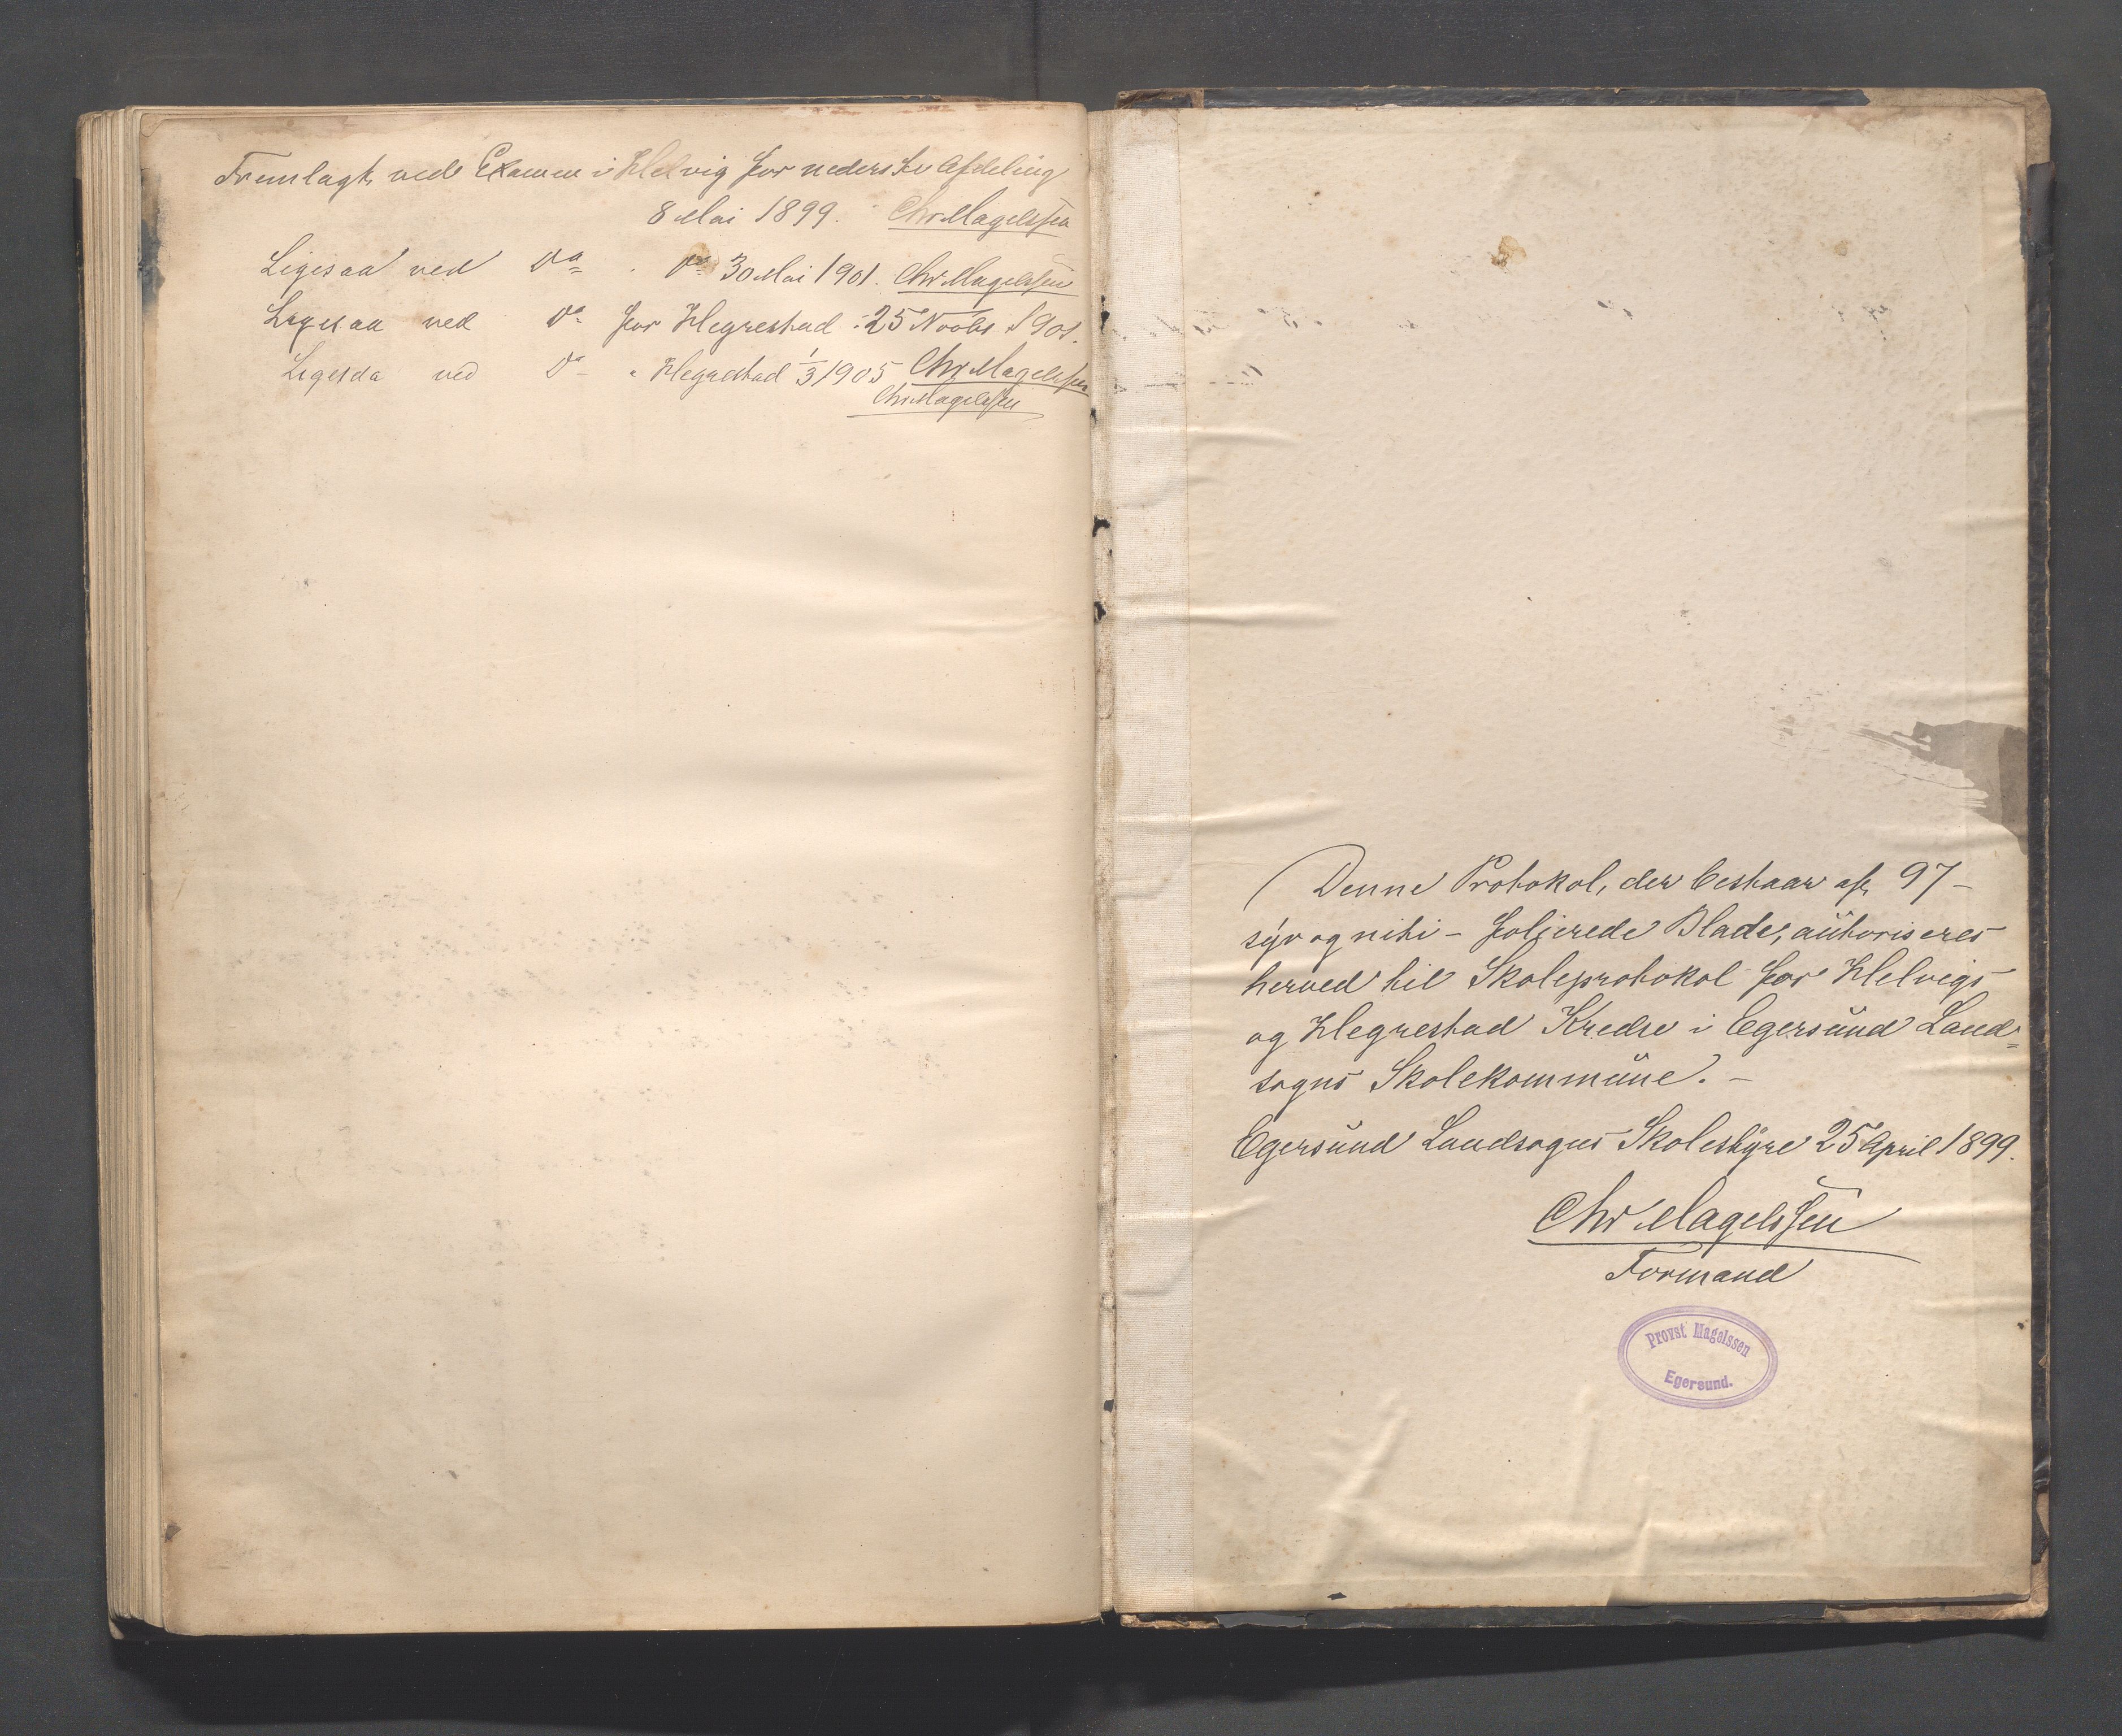 Fremlagt ved Examen i Helvig for nederste Afdeling
8 Mai 1899. Chr Magelssen
Ligesaa ved Do . Do 30 Mai 1901. Chr Magelssen
Ligesaa ved Do for Hegrestad 25 Novbr 1901.
Chr Magelssen
Ligesaa ved Do " Hegrestad 1/3 1905
Chr Magelssen
Denne Protokol, der bestaar af 97 -
syv og niti - folierede Blade, autoriseres
herved til Skoleprotokol for Helvigs
og Hegrestad Kredse i Egersund Land=
sogns Skolekommune. -
Egersund Landsogns Skolestyre 25 April 1899.
Chr Magelssen
Formand
Provst Magelssen
Egersund.